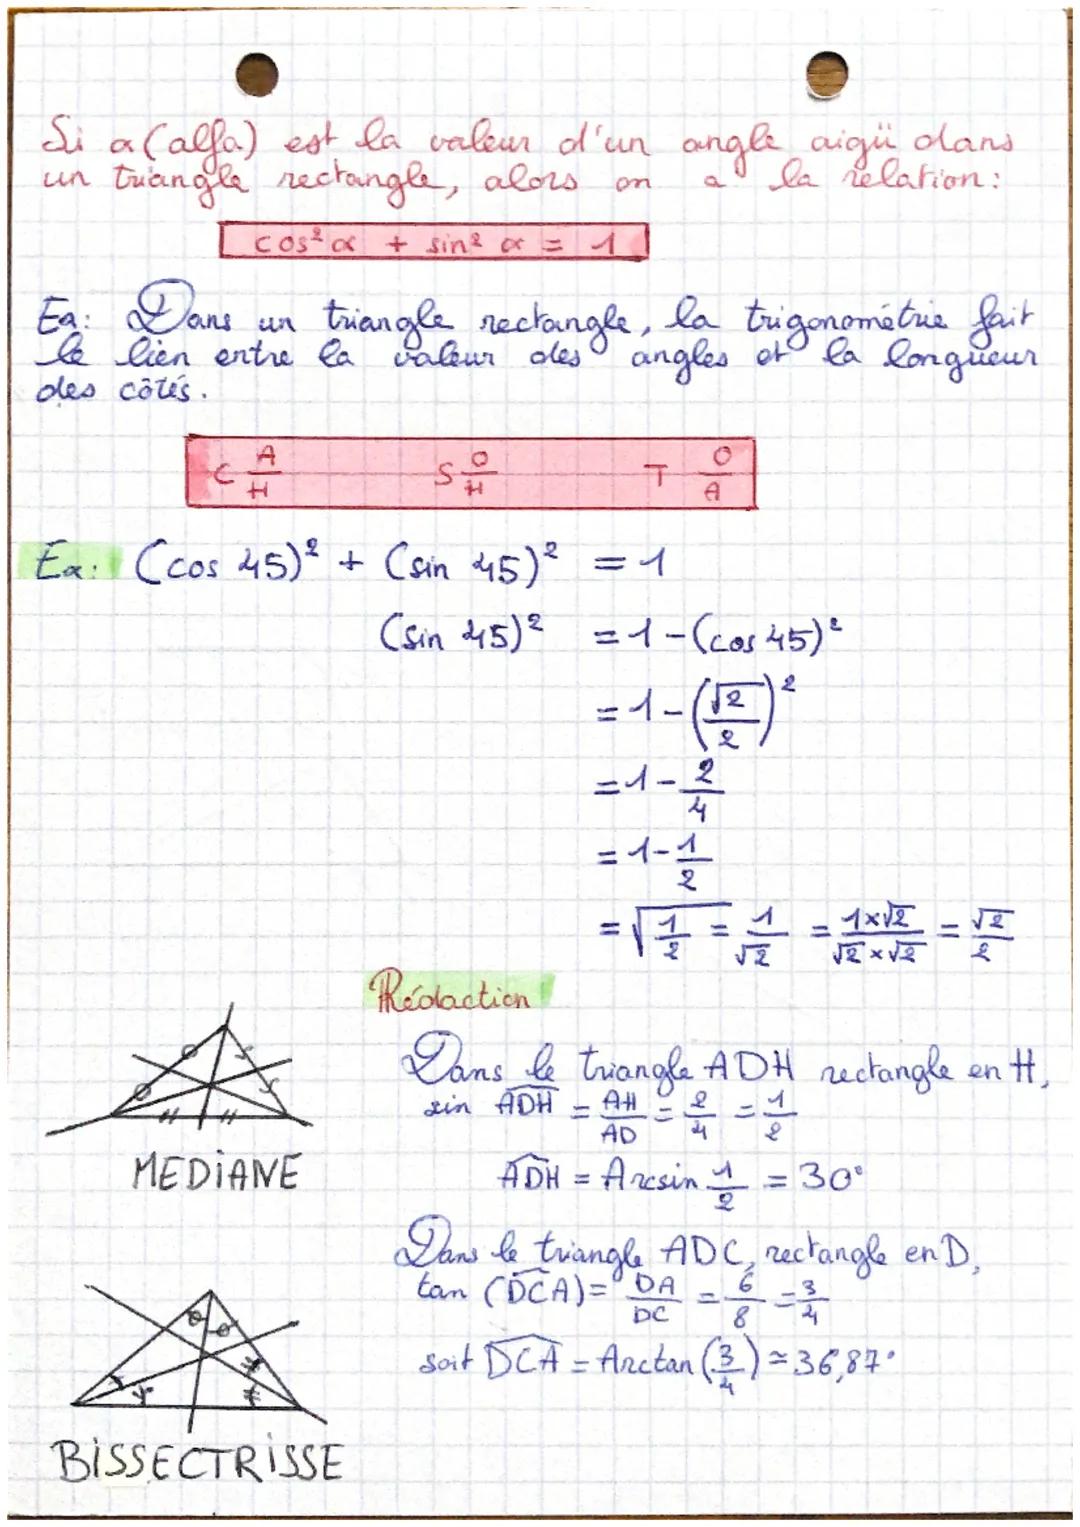 Si α (alfa) est la valeur d'un angle aigü dans
un triangle rectangle, alors on a la relation:
cos² α + sin² α = 1
Ea: Dans un triangle rectangle, la trigonométrie fait
le lien entre la valeur des angles et la longueur
des côtés.
C A/H S O/H T O/A
Ex: (cos 45)² + (sin 45)² = 1
(sin 45)² = 1 - (cos 45)²
= 1 - (√2/2)²
= 1 - 2/4
= 1 - 1/2
= √(1/2) = 1/√2 = 1×√2/√2×√2 = √2/2
Rédaction
Dans le triangle ADH rectangle en H,
sin ADH = AH/AD = 2/4 = 1/2
MEDIANE
ADH = Arcsin 1/2 = 30°
Dans le triangle ADC, rectangle en D,
tan (DCA) = DA/DC = 6/8 = 3/4
soit DCA = Arctan (3/4) ≃ 36,87°
BISSECTRISSE